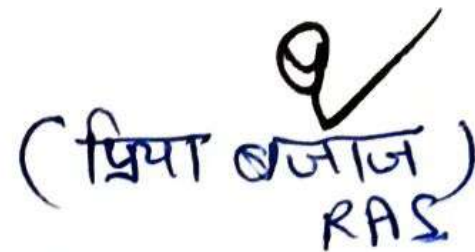 (प्रिया बजाज)
RAS